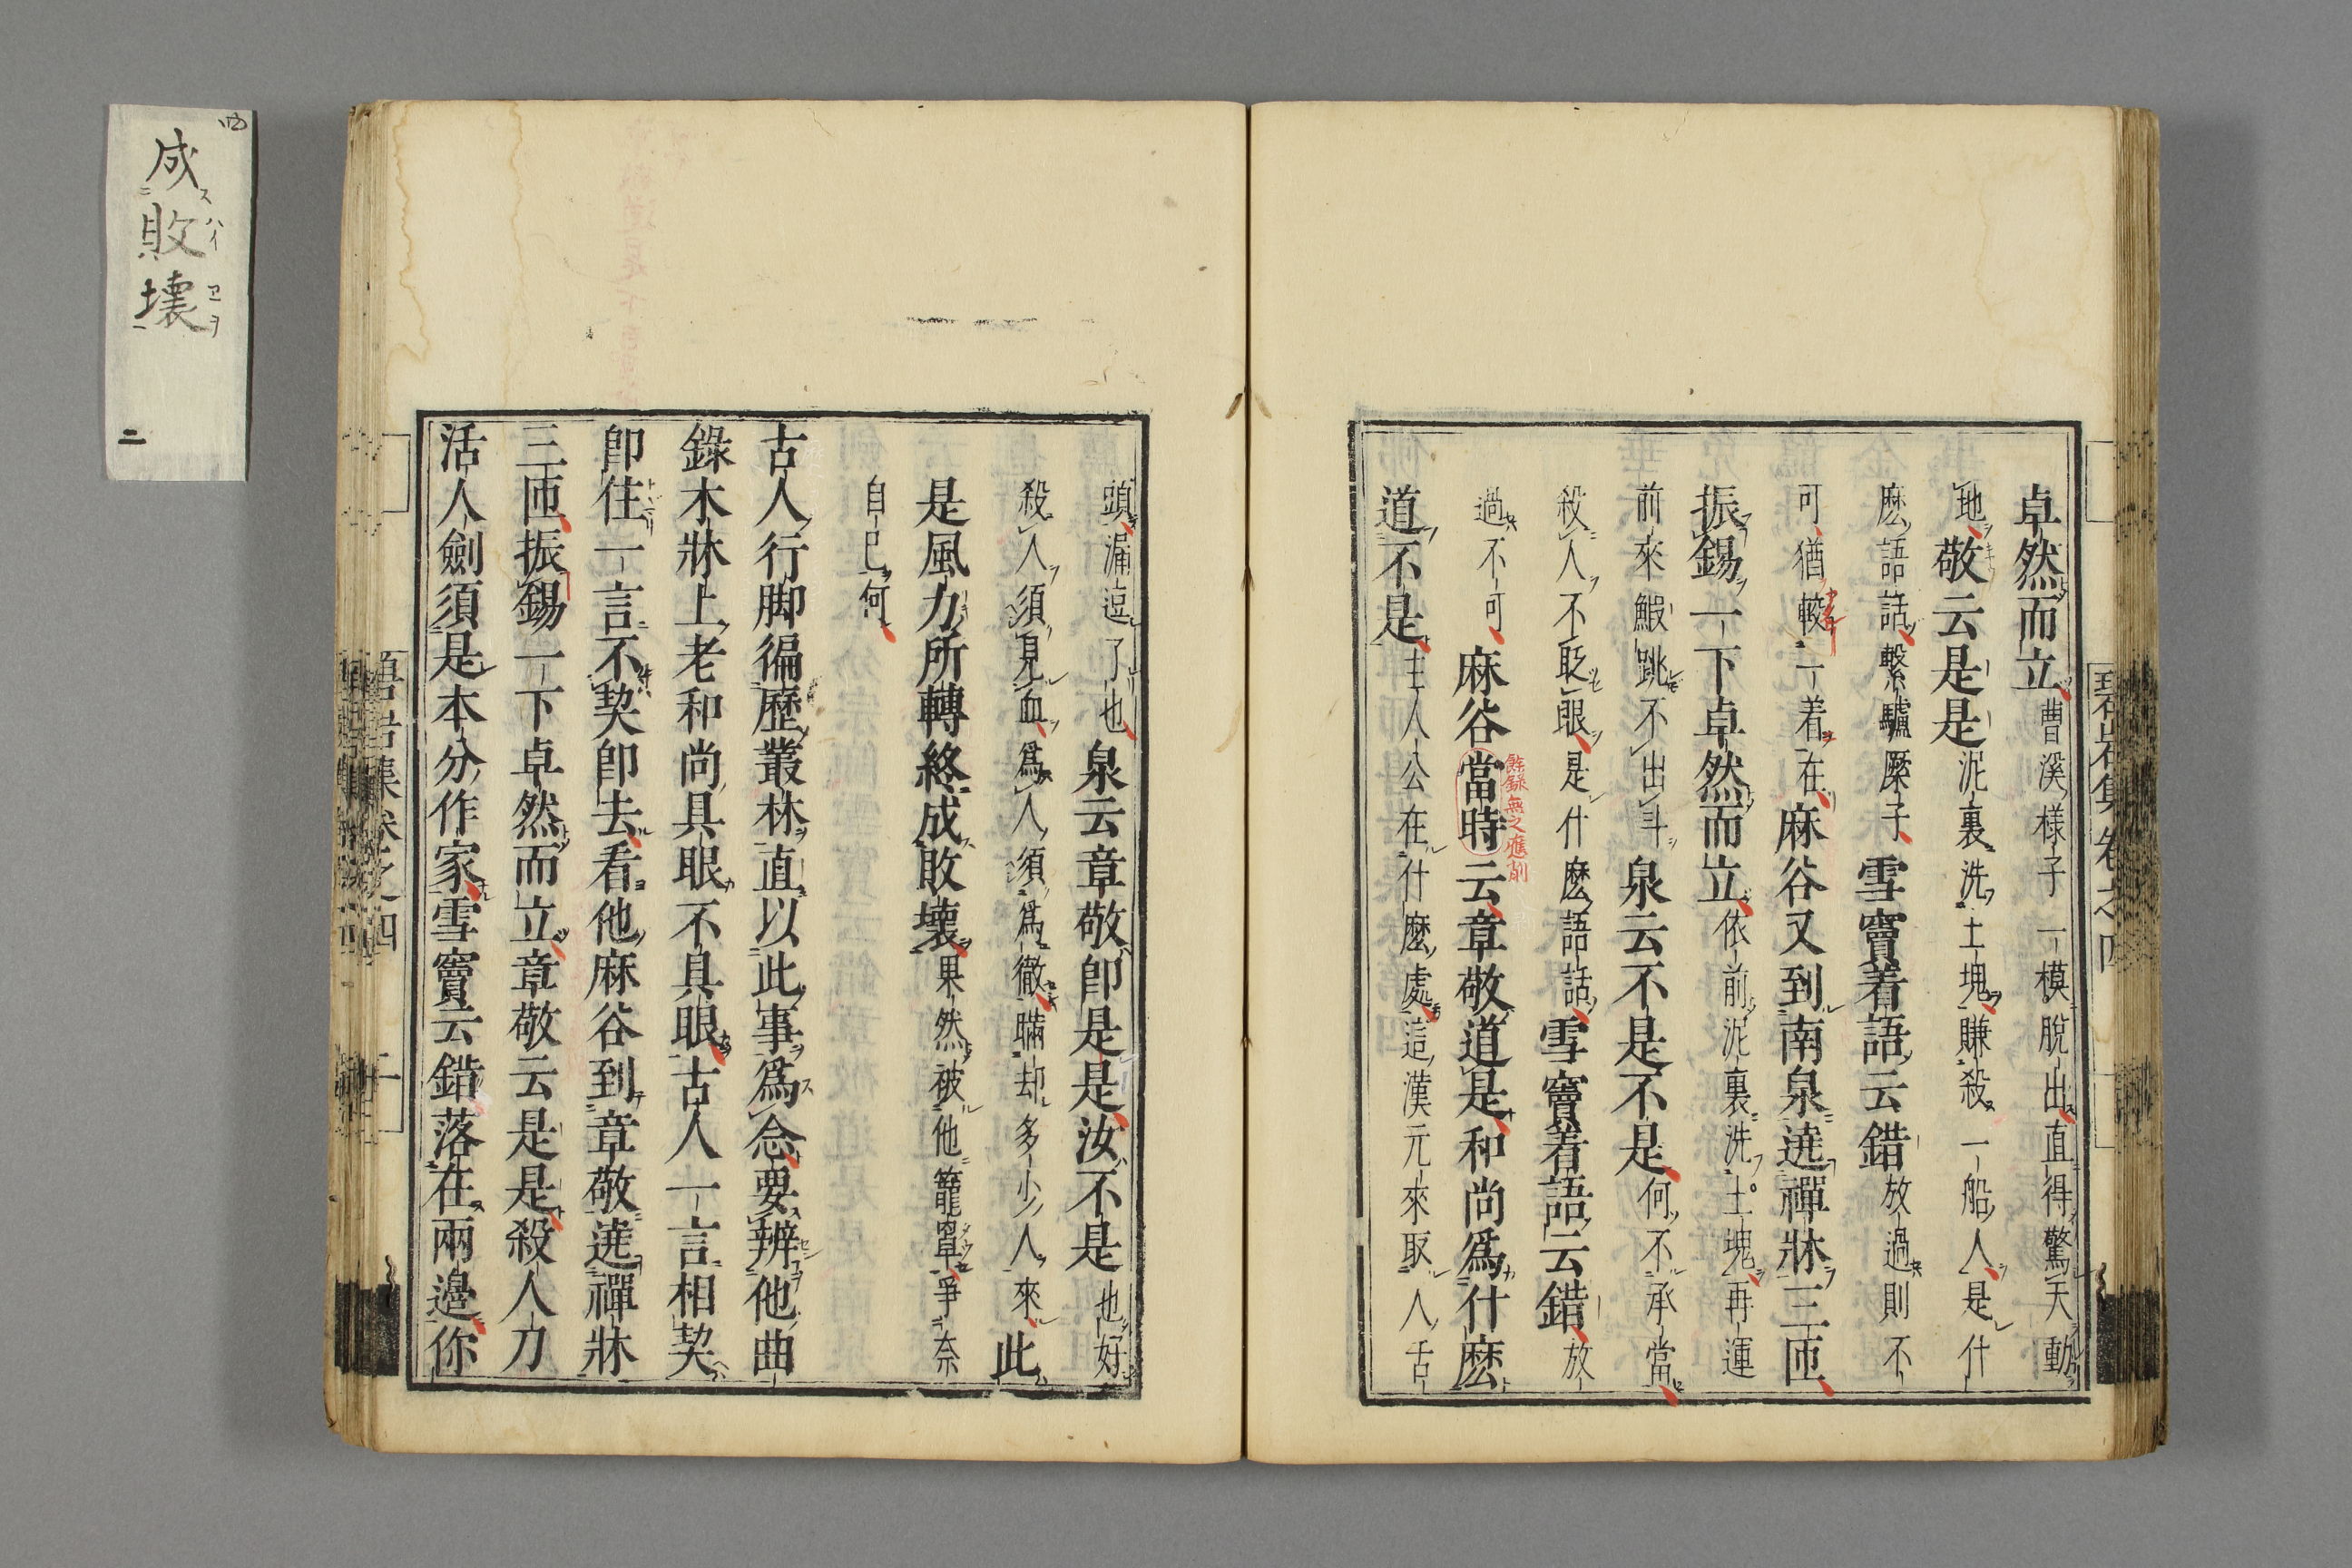 卓然而立曹溪樣子一模脫出直得驚天動
地敬云是是泥裏洗土塊賺殺一船人是什
麽語話繫驢橛子雪竇着語云錯放過則不
可猶較一着在麻谷又到南泉遶禪牀三匝
振錫一下卓然而立依前泥裏洗土塊再運
前來鰕跳不出斗泉云不是不是何不承當
殺人不眨眼是什麽語話雪竇着語云錯放
過不可麻谷當時云章敬道是和尚爲什麽
餘錄無之應削
道不是主人公在什麽處這漢元來取人舌
碧岩集卷之四
頭漏逗了也泉云章敬卽是是汝不是也好
殺人須見血爲人須爲徹瞞却多少人來此
是風力所轉終成敗壞果然被他籠罩爭奈
自己何
古人行脚徧歷叢林直以此事爲念要辨他曲
錄木牀上老和尚具眼不具眼古人一言相契
卽住一言不契卽去看他麻谷到章敬遶禪牀
三匝振錫一下卓然而立章敬云是是殺人刀
活人劍須是本分作家雪竇云錯落在兩邊你
四
成敗壞
スハイヱヲ
二